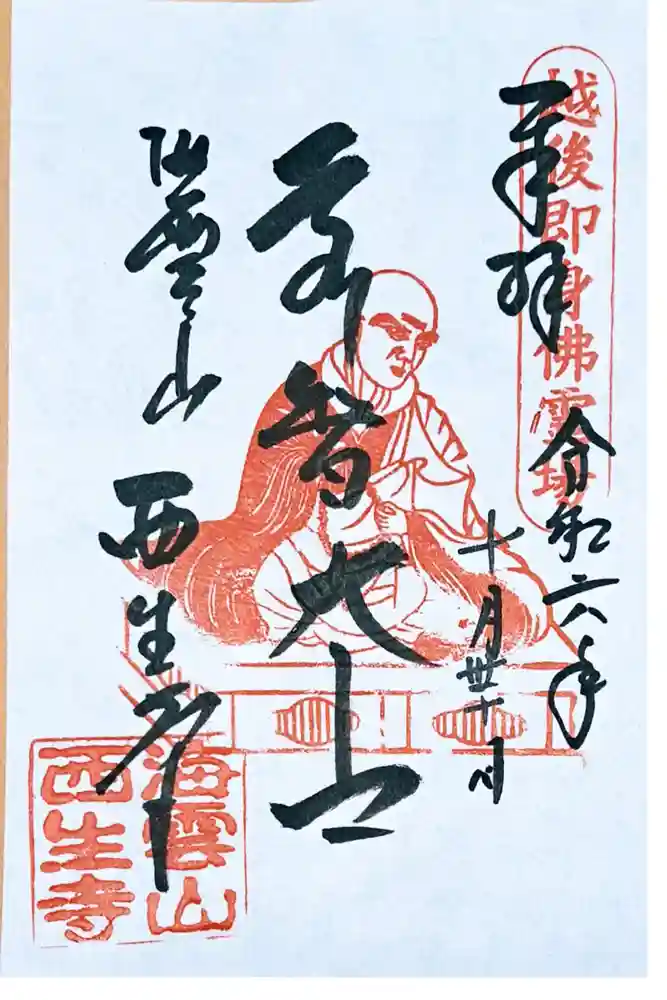 越後即身佛霊場
奉拝
令和六年
十月卅十日
弘智大士
海雲山
西生寺
海雲山
西生寺